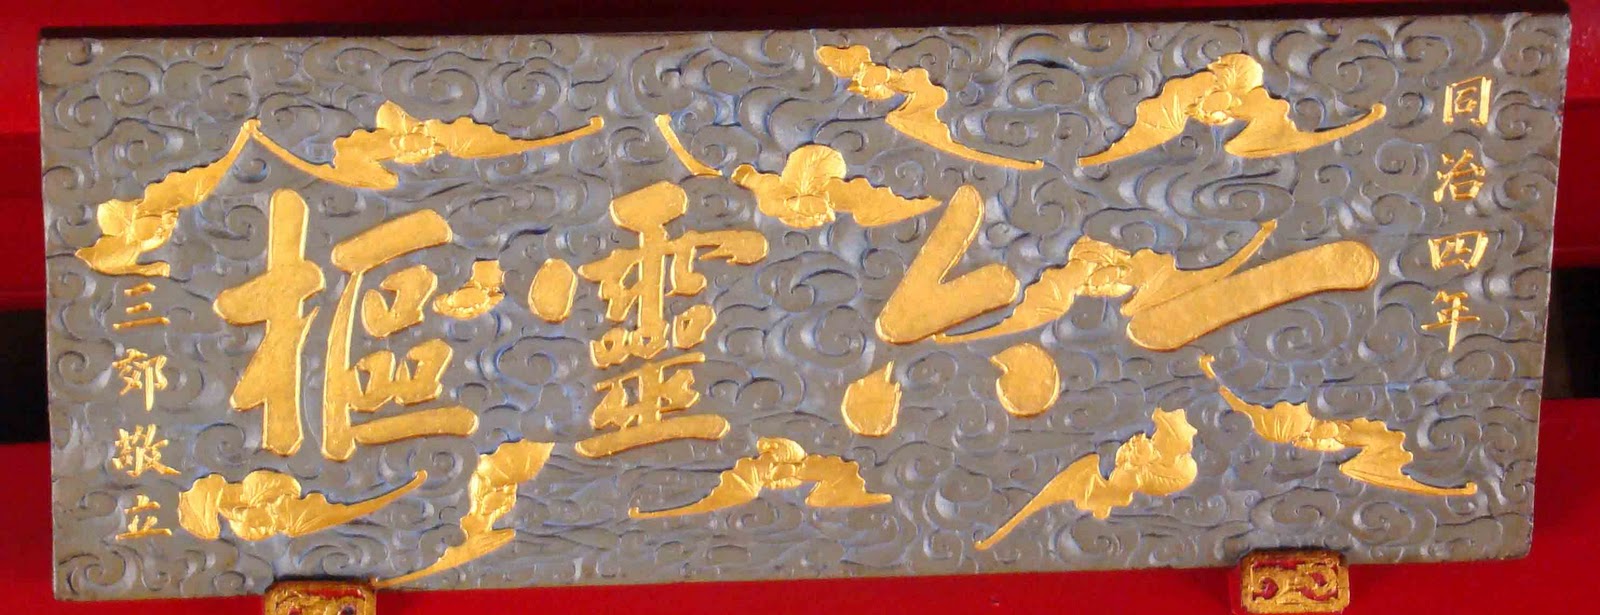 同治四年
一六靈樞
三郊敬立